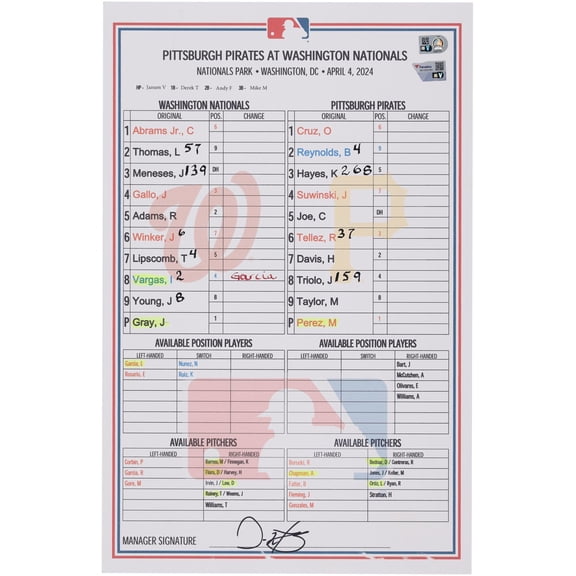 PITTSBURGH PIRATES AT WASHINGTON NATIONALS
NATIONALS PARK • WASHINGTON, DC • APRIL 4, 2024
HP - Jansen V 1B - Derek T 2B - Andy F 3B - Mike M
WASHINGTON NATIONALS
ORIGINAL POS. CHANGE
1 Abrams Jr., C 6
2 Thomas, L 57 9
3 Meneses, J 139 DH
4 Gallo, J 3
5 Adams, R 2
6 Winker, J 6 7
7 Lipscomb, T 4 5
8 Vargas, I 2 4 Garcia
9 Young, J 8 8
P Gray, J 1
PITTSBURGH PIRATES
ORIGINAL POS. CHANGE
1 Cruz, O 6
2 Reynolds, B 4 9
3 Hayes, K 268 5
4 Suwinski, J 7
5 Joe, C DH
6 Tellez, R 37 3
7 Davis, H 2
8 Triolo, J 159 4
9 Taylor, M 8
P Perez, M 1
AVAILABLE POSITION PLAYERS
LEFT-HANDED SWITCH RIGHT-HANDED
Garcia, L Nunez, N
Rosario, E Ruiz, K
AVAILABLE POSITION PLAYERS
LEFT-HANDED SWITCH RIGHT-HANDED
Bart, J
McCutchen, A
Olivares, E
Williams, A
AVAILABLE PITCHERS
LEFT-HANDED RIGHT-HANDED
Corbin, P Barnes, M / Finnegan, K
Garcia, R Floro, D / Harvey, H
Gore, M Irvin, J / Law, D
Rainey, T / Weems, J
Williams, T
AVAILABLE PITCHERS
LEFT-HANDED RIGHT-HANDED
Borucki, R Bednar, D / Contreras, R
Chapman, A Jones, J / Keller, M
Falter, B Ortiz, L / Ryan, R
Fleming, J Stratton, H
Gonzales, M
MANAGER SIGNATURE